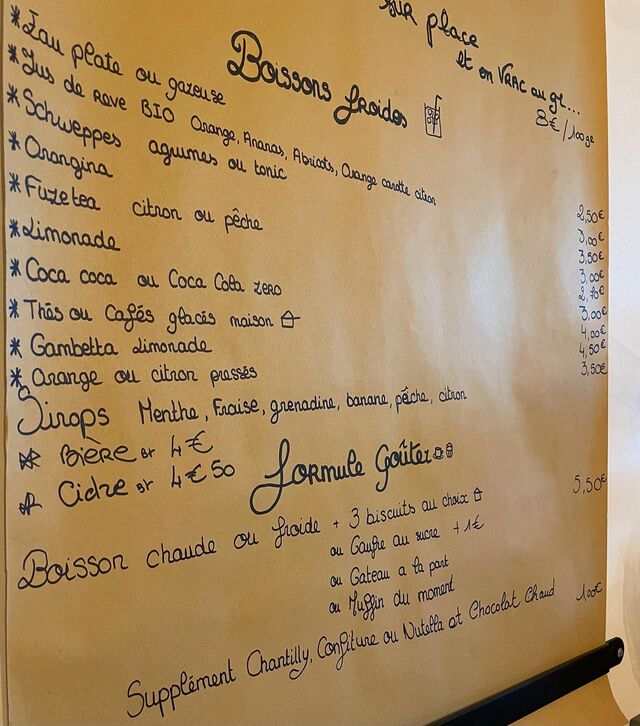 sur place
et en VRAC au gr...
8€/100gr
Boissons froides
* Eau plate ou gazeuse
* Jus de Reve BIO Orange, Ananas, Abricots, Orange carotte citron
* Schweppes agumes ou tonic
* Orangina
* Fuzetea citron ou pêche
* Limonade
* Coca coca ou Coca Cola zero
* Thés ou Cafés glacés maison
* Gambetta Limonade
* Orange ou citron pressés
Sirops Menthe, Fraise, grenadine, banane, pêche, citron
2,50€
3,00€
3,50€
3,00€
2,70€
3,00€
4,00€
4,50€
3,50€
* Bière BT 4€
* Cidre BT 4€50
Formule Goûter
Boisson chaude ou froide + 3 biscuits au choix 5,50€
ou Gaufre au sucre +1€
ou Gateau a la part
ou Muffin du moment
Supplément Chantilly, Confiture ou Nutella et Chocolat Chaud 1,00€